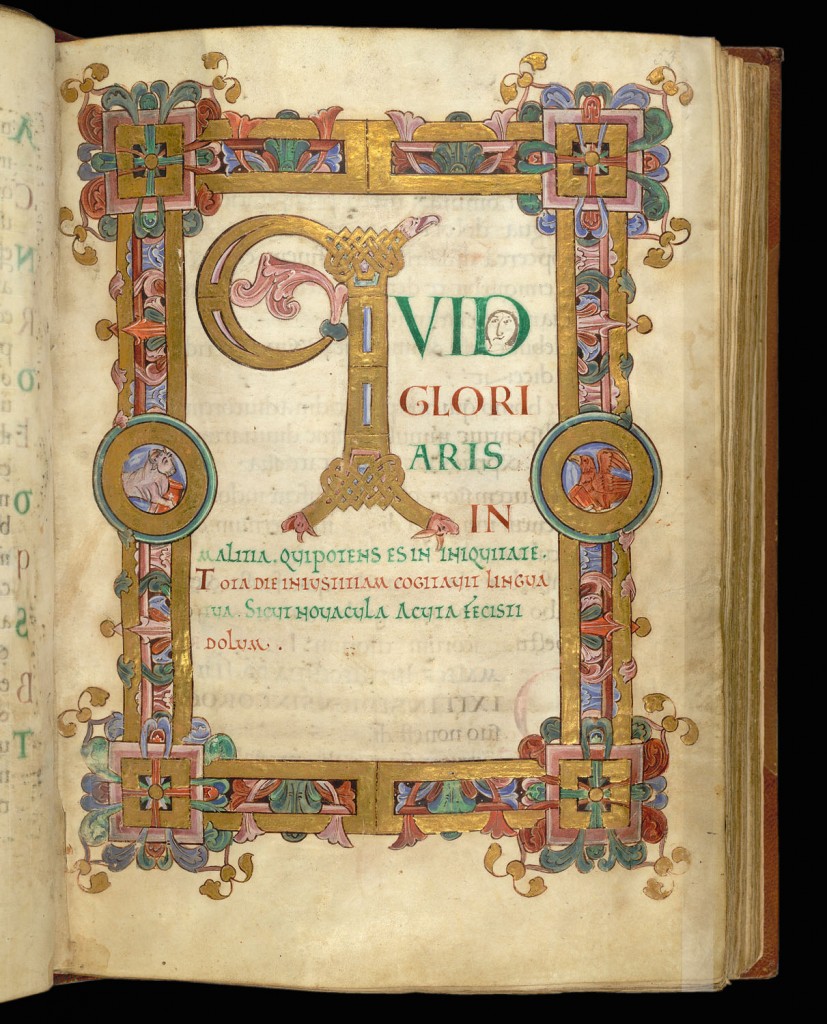 QVID
GLORI
ARIS
IN
MALITIA. QVI POTENS ES IN INIQVITATE.
TOTA DIE INIVSTITIAM COGITAVIT LINGVA
TVA. SICVT NOVACVLA ACVTA FECISTI
DOLVM.